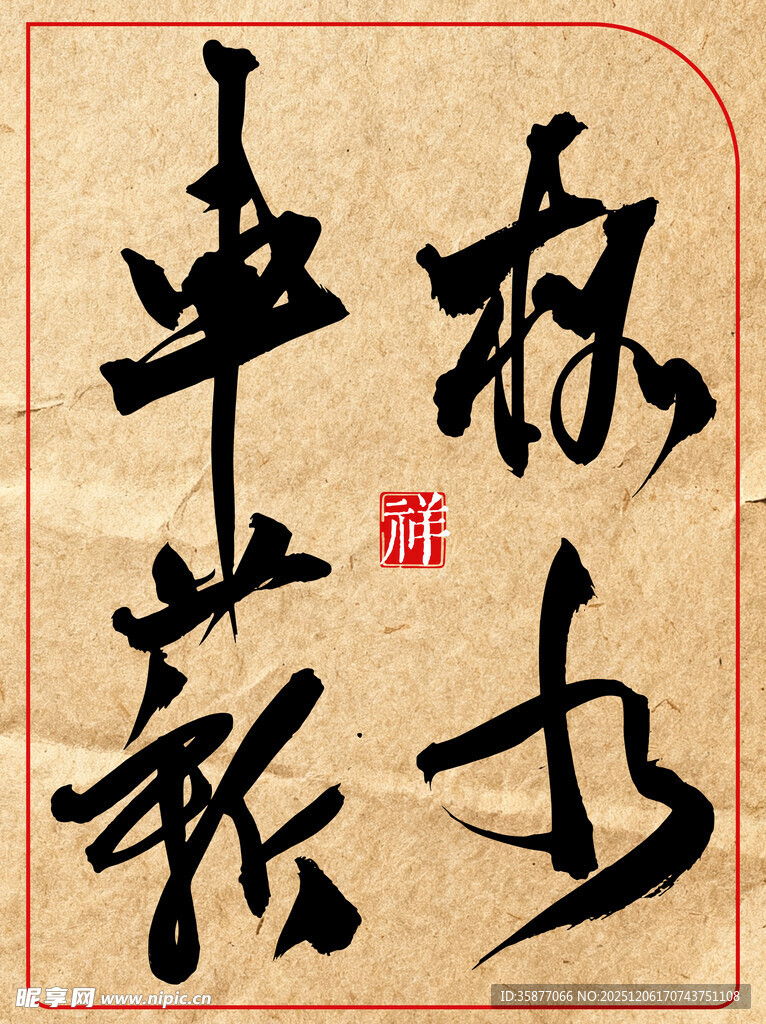 杯水
車薪
祥
昵享网 www.nipic.cn
ID:35877066 NO:20251206170743751108